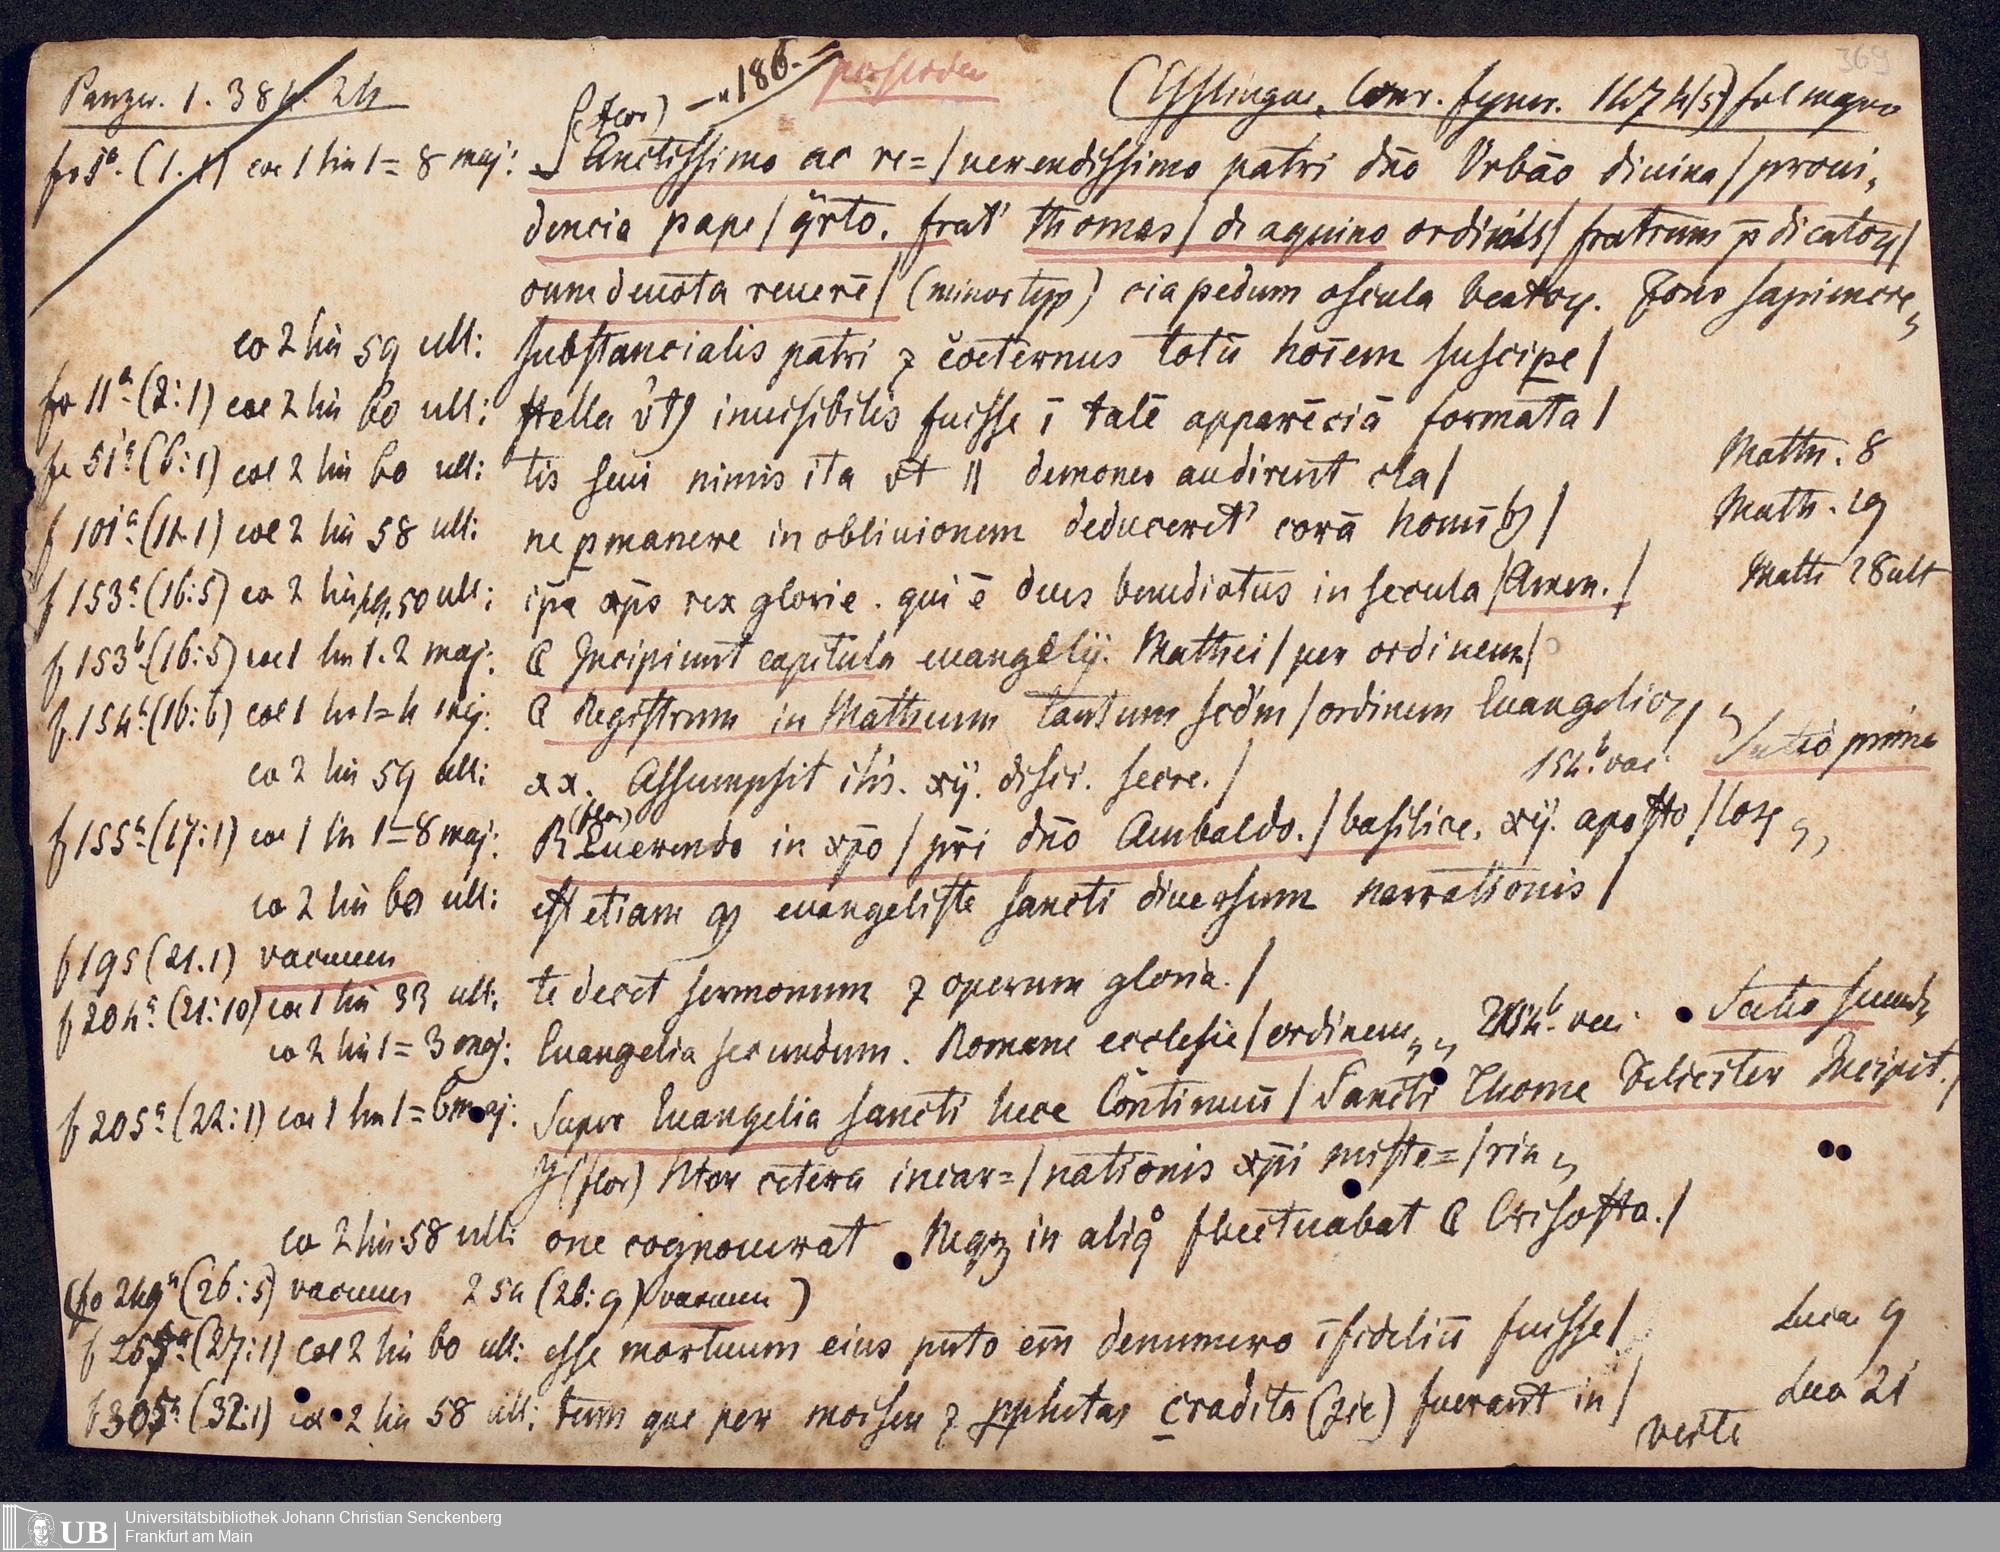 369
Panzer. 1. 384. 24 186. posterior (Esslingae, Conr. fyner. 1474/5) fol magno
fo 5a. (1.1) col 1 lin 1=8 maj: S(flor) Anctissimo ac re=/uerendissimo patri dño Vrbão diuina/proui,
dencia pape/q̈rto. frat' thomas/de aquino ordinis/fratrum p̄dicatoꝝ/
cum deuota reuerē/(minor typ) cia pedum oscula beatoꝝ. Fons sapiencie,,
co 2 lin 59 ult: substancialis patri ⁊ c̄oeternus totū hoīem suscipe/
fo 11a (2:1) col 2 lin 60 ult: stella v̓tꝫ inuisibilis fuisse ī talē apparēciā formata/
fo 51a (6:1) col 2 lin 60 ult: tis seui nimis ita vt || demones audirent cla/ Math. 8
f 101a (11.1) col 2 lin 58 ult: ne pmanere in obliuionem deduceret' corā hoīnibꝫ/ Math. 19
f 153a (16:5) co 2 lin 49.50 ult: ip̄e xp̄s rex glorie. qui ē deus benedictus in secula/Amen./ Math 28 ult
f 153b (16:5) col 1 lin 1.2 maj: C Incipiunt capitula euangelij. Mathei/per ordinem/
f. 154a (16:6) col 1 lin 1=4 maj: C Registrum in Matheum tantum scdm/ordinem Euangelioꝝ,,
co 2 lin 59 ult: xx. Assumpsit ihs. xij. disci. secre./ 154b vac. Sectio prima
f 155a (17:1) co 1 lin 1=8 maj: R(flor)Euerendo in xp̄o/pr̄i dño Anibaldo./basilice. xij. aposto/loꝝ,,
co 2 lin 60 ult: est etiam qꝫ euangeliste sancti diuersum narrationis/
f 195 (21.1) vacuum
f 204a (21:10) col 1 lin 33 ult: te decet sermonum ⁊ operum gloria./
co 2 lin 1=3 maj: Euangelia secundum. Romane ecclesie/ordinem,, 204b. vac. Sectio secunda
f 205a (22:1) col 1 lin 1=6 maj: Super Euangelia sancti luce Continuū/Sancti Thome Feliciter Incipit./
J(flor) Nter cetera incar=/nationis xp̄i miste=/ria,,
co 2 lin 58 ult: one cognouerat Neqꝫ in aliqͦ fluctuabat C Crisosto./
(fo 249a (26:5) vacuum 254 (26:9) vacuum)
f 255a (27:1) col 2 lin 60 ult: esse mortuum eius puto em̄ denumero īfideliū fuisse/ Luca 9
f 305a (32:1) col 2 lin 58 ult: tum que per moisen ⁊ pphetas cradita (sic) fuerant in/ Luca 21
verte
UB Universitätsbibliothek Johann Christian Senckenberg
Frankfurt am Main